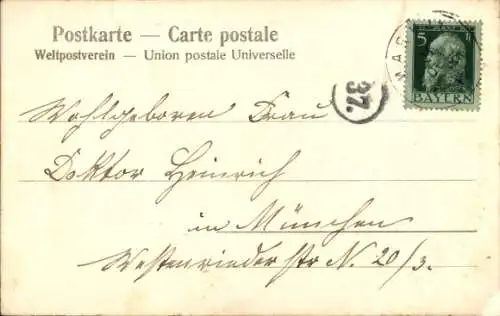 Postkarte — Carte postale
Weltpostverein — Union postale Universelle
5
BAYERN
37.
Wohlgeboren Frau
Doktor Heinrich
in München
Westenrieder str N. 20/3.